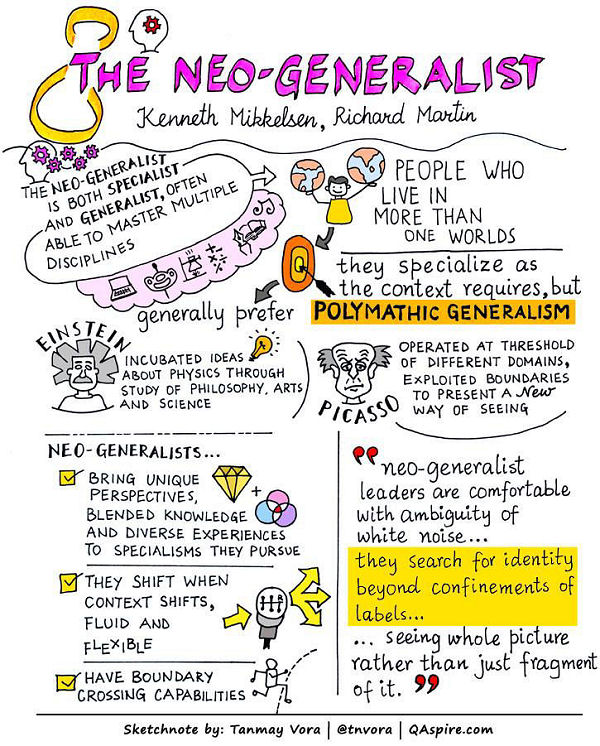 THE NEO-GENERALIST
Kenneth Mikkelsen, Richard Martin
THE NEO-GENERALIST
IS BOTH SPECIALIST
AND GENERALIST, OFTEN
ABLE TO MASTER MULTIPLE
DISCIPLINES
PEOPLE WHO
LIVE IN
MORE THAN
ONE WORLDS
they specialize as
the context requires, but
generally prefer
POLYMATHIC GENERALISM
EINSTEIN
INCUBATED IDEAS
ABOUT PHYSICS THROUGH
STUDY OF PHILOSOPHY, ARTS
AND SCIENCE
PICASSO
OPERATED AT THRESHOLD
OF DIFFERENT DOMAINS,
EXPLOITED BOUNDARIES
TO PRESENT A NEW
WAY OF SEEING
NEO-GENERALISTS...
BRING UNIQUE
PERSPECTIVES,
BLENDED KNOWLEDGE
AND DIVERSE EXPERIENCES
TO SPECIALISMS THEY PURSUE
THEY SHIFT WHEN
CONTEXT SHIFTS,
FLUID AND
FLEXIBLE
R
HAVE BOUNDARY
CROSSING CAPABILITIES
"neo-generalist
leaders are comfortable
with ambiguity of
white noise...
they search for identity
beyond confinements of
labels...
... seeing whole picture
rather than just fragment
of it."
Sketchnote by: Tanmay Vora | @tnvora | QAspire.com